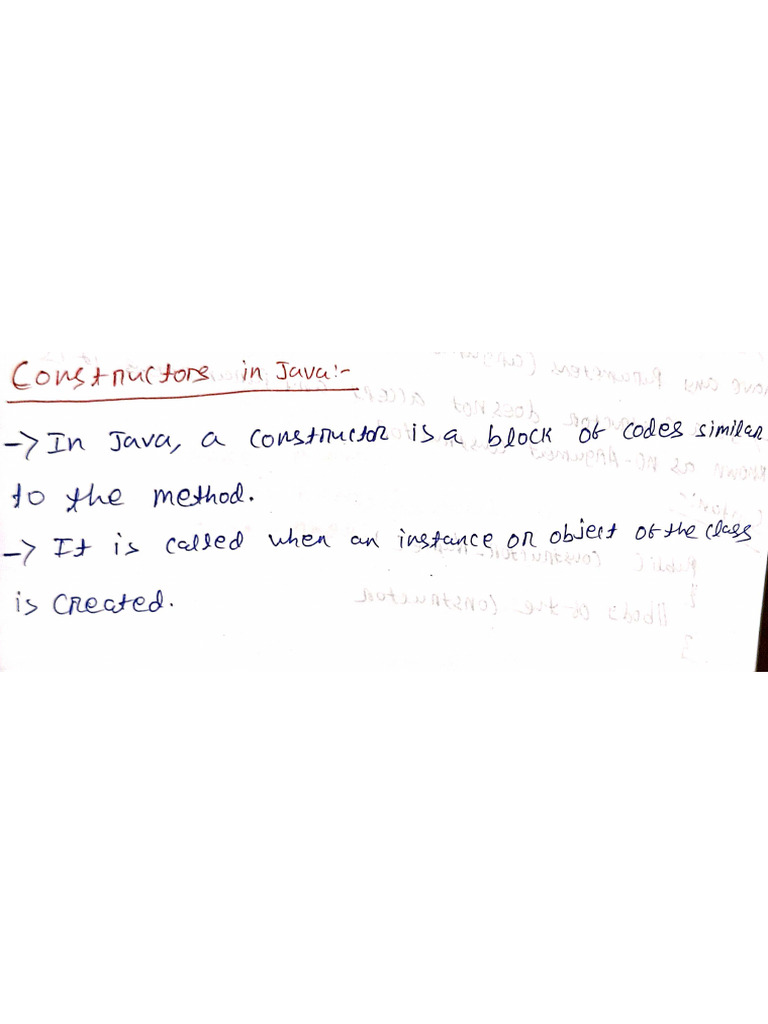 Constructors in Java:-
-> In Java, a constructor is a block of codes similar
to the method.
-> It is called when an instance or object of the class
is created.